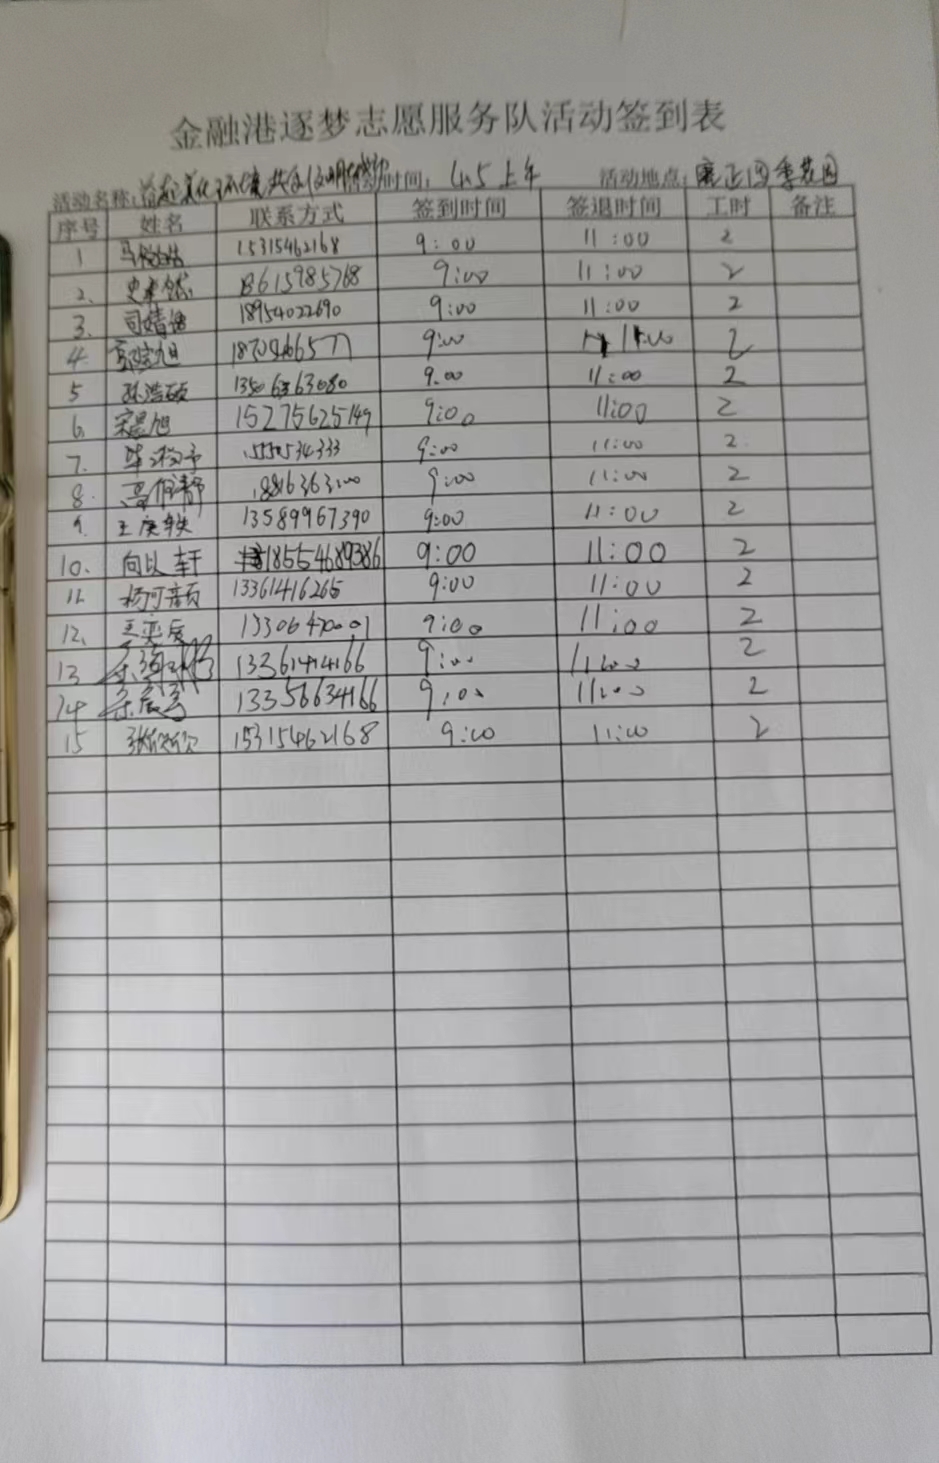 金融港逐梦志愿服务队活动签到表
活动名称: 美化环境 共 文明 时间: 4.5 上午 活动地点: 四季花园
序号 姓名 联系方式 签到时间 签退时间 工时 备注
1 马 15315462168 9:00 11:00 2
2. 史 18615985768 9:00 11:00 2
3. 司婧 18954022690 9:00 11:00 2
4. 旭 9:00 11:00 2
5 孙浩硕 9.00 11:00 2
6. 宋昱旭 15275625149 9:00 11:00 2
7. 9:00 11:00 2
8. 高 静 9:00 11:00 2
9. 王庚轶 13589967390 9:00 11:00 2
10. 向以轩 18554689386 9:00 11:00 2
11. 杨可 13361416265 9:00 11:00 2
12. 王奕 9:00 11:00 2
13 13361414166 9:00 11:00 2
14 13356634166 9:00 11:00 2
15 张 15315462168 9:00 11:00 2